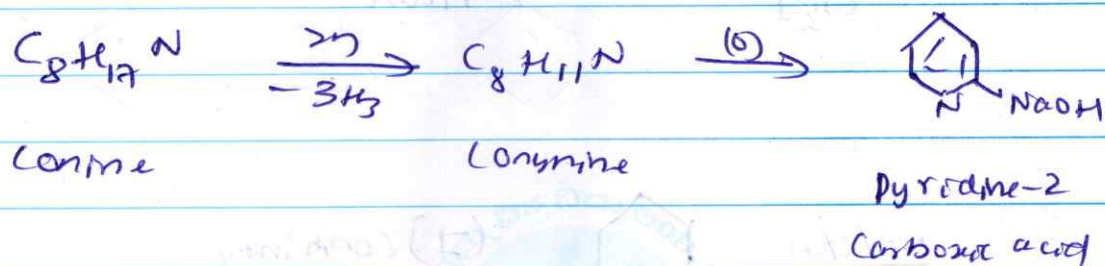 C8H17N Zn -3H2 C8H11N (O) N NaOH
Conine Conynine Pyridine-2
Carboxic acid